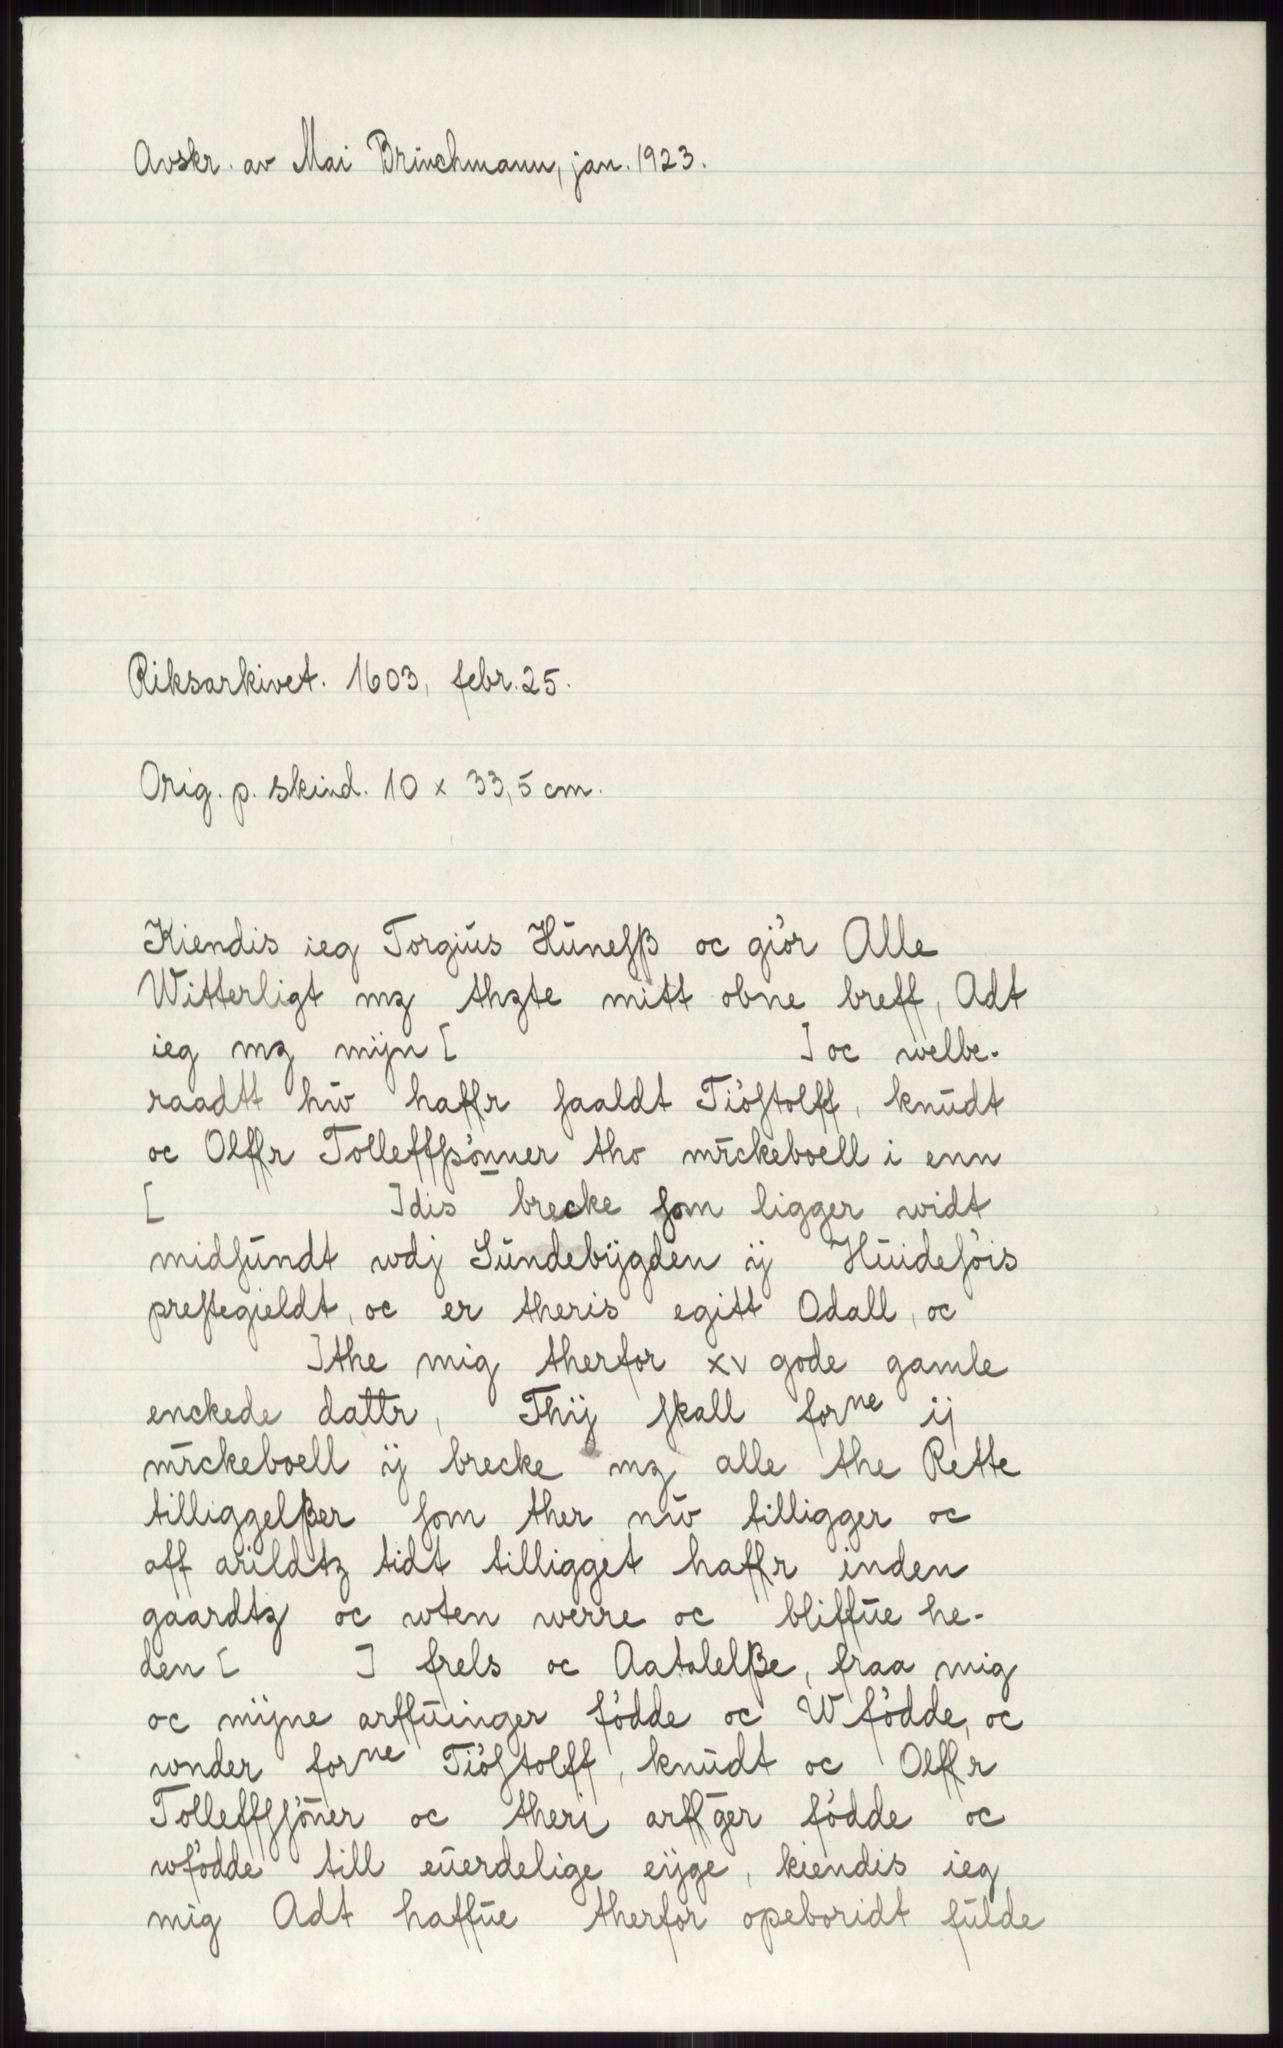 Avskr. av Mai Brinchmann, jan. 1923.
Riksarkivet. 1603, febr. 25.
Orig. p. skind. 10 x 33,5 cm.
Kiendis ieg Torgiŭs Hŭnesß oc giór Alle
Witterligt mz thzte mitt obne breff, Adt
ieg mz mijn [ ] oc welbe-
raadtt hŭ haffr saaldt Tióstolff, knŭdt
oc Olffr Tolleffsónner tho mrckeboell i enn
[ ]dis brecke som ligger widt
midsŭndt wdj Sŭndebÿgden ij Hŭidesóis
prestegieldt, oc er theris egitt Odall, oc
]the mig therfor xv gode gamle
enckede dattr, Thij skall forne ij
mrckeboell ij brecke mz alle the Rette
tilliggelßer som ther nŭ tilligger oc
aff arildtz tidt tilligget haffr inden
gaardtz oc wten werre oc bliffŭe he-
den [ ] frels oc Aatalelße, fraa mig
oc mijne arffŭinger fódde oc Wfódde, oc
wnder forne Tióstolff, knŭdt oc Olffr
Tolleffsóner oc theri arffger fódde oc
wfódde till eŭerdelige eÿge, kiendis ieg
mig Adt haffŭe therfor opeboridt fŭlde